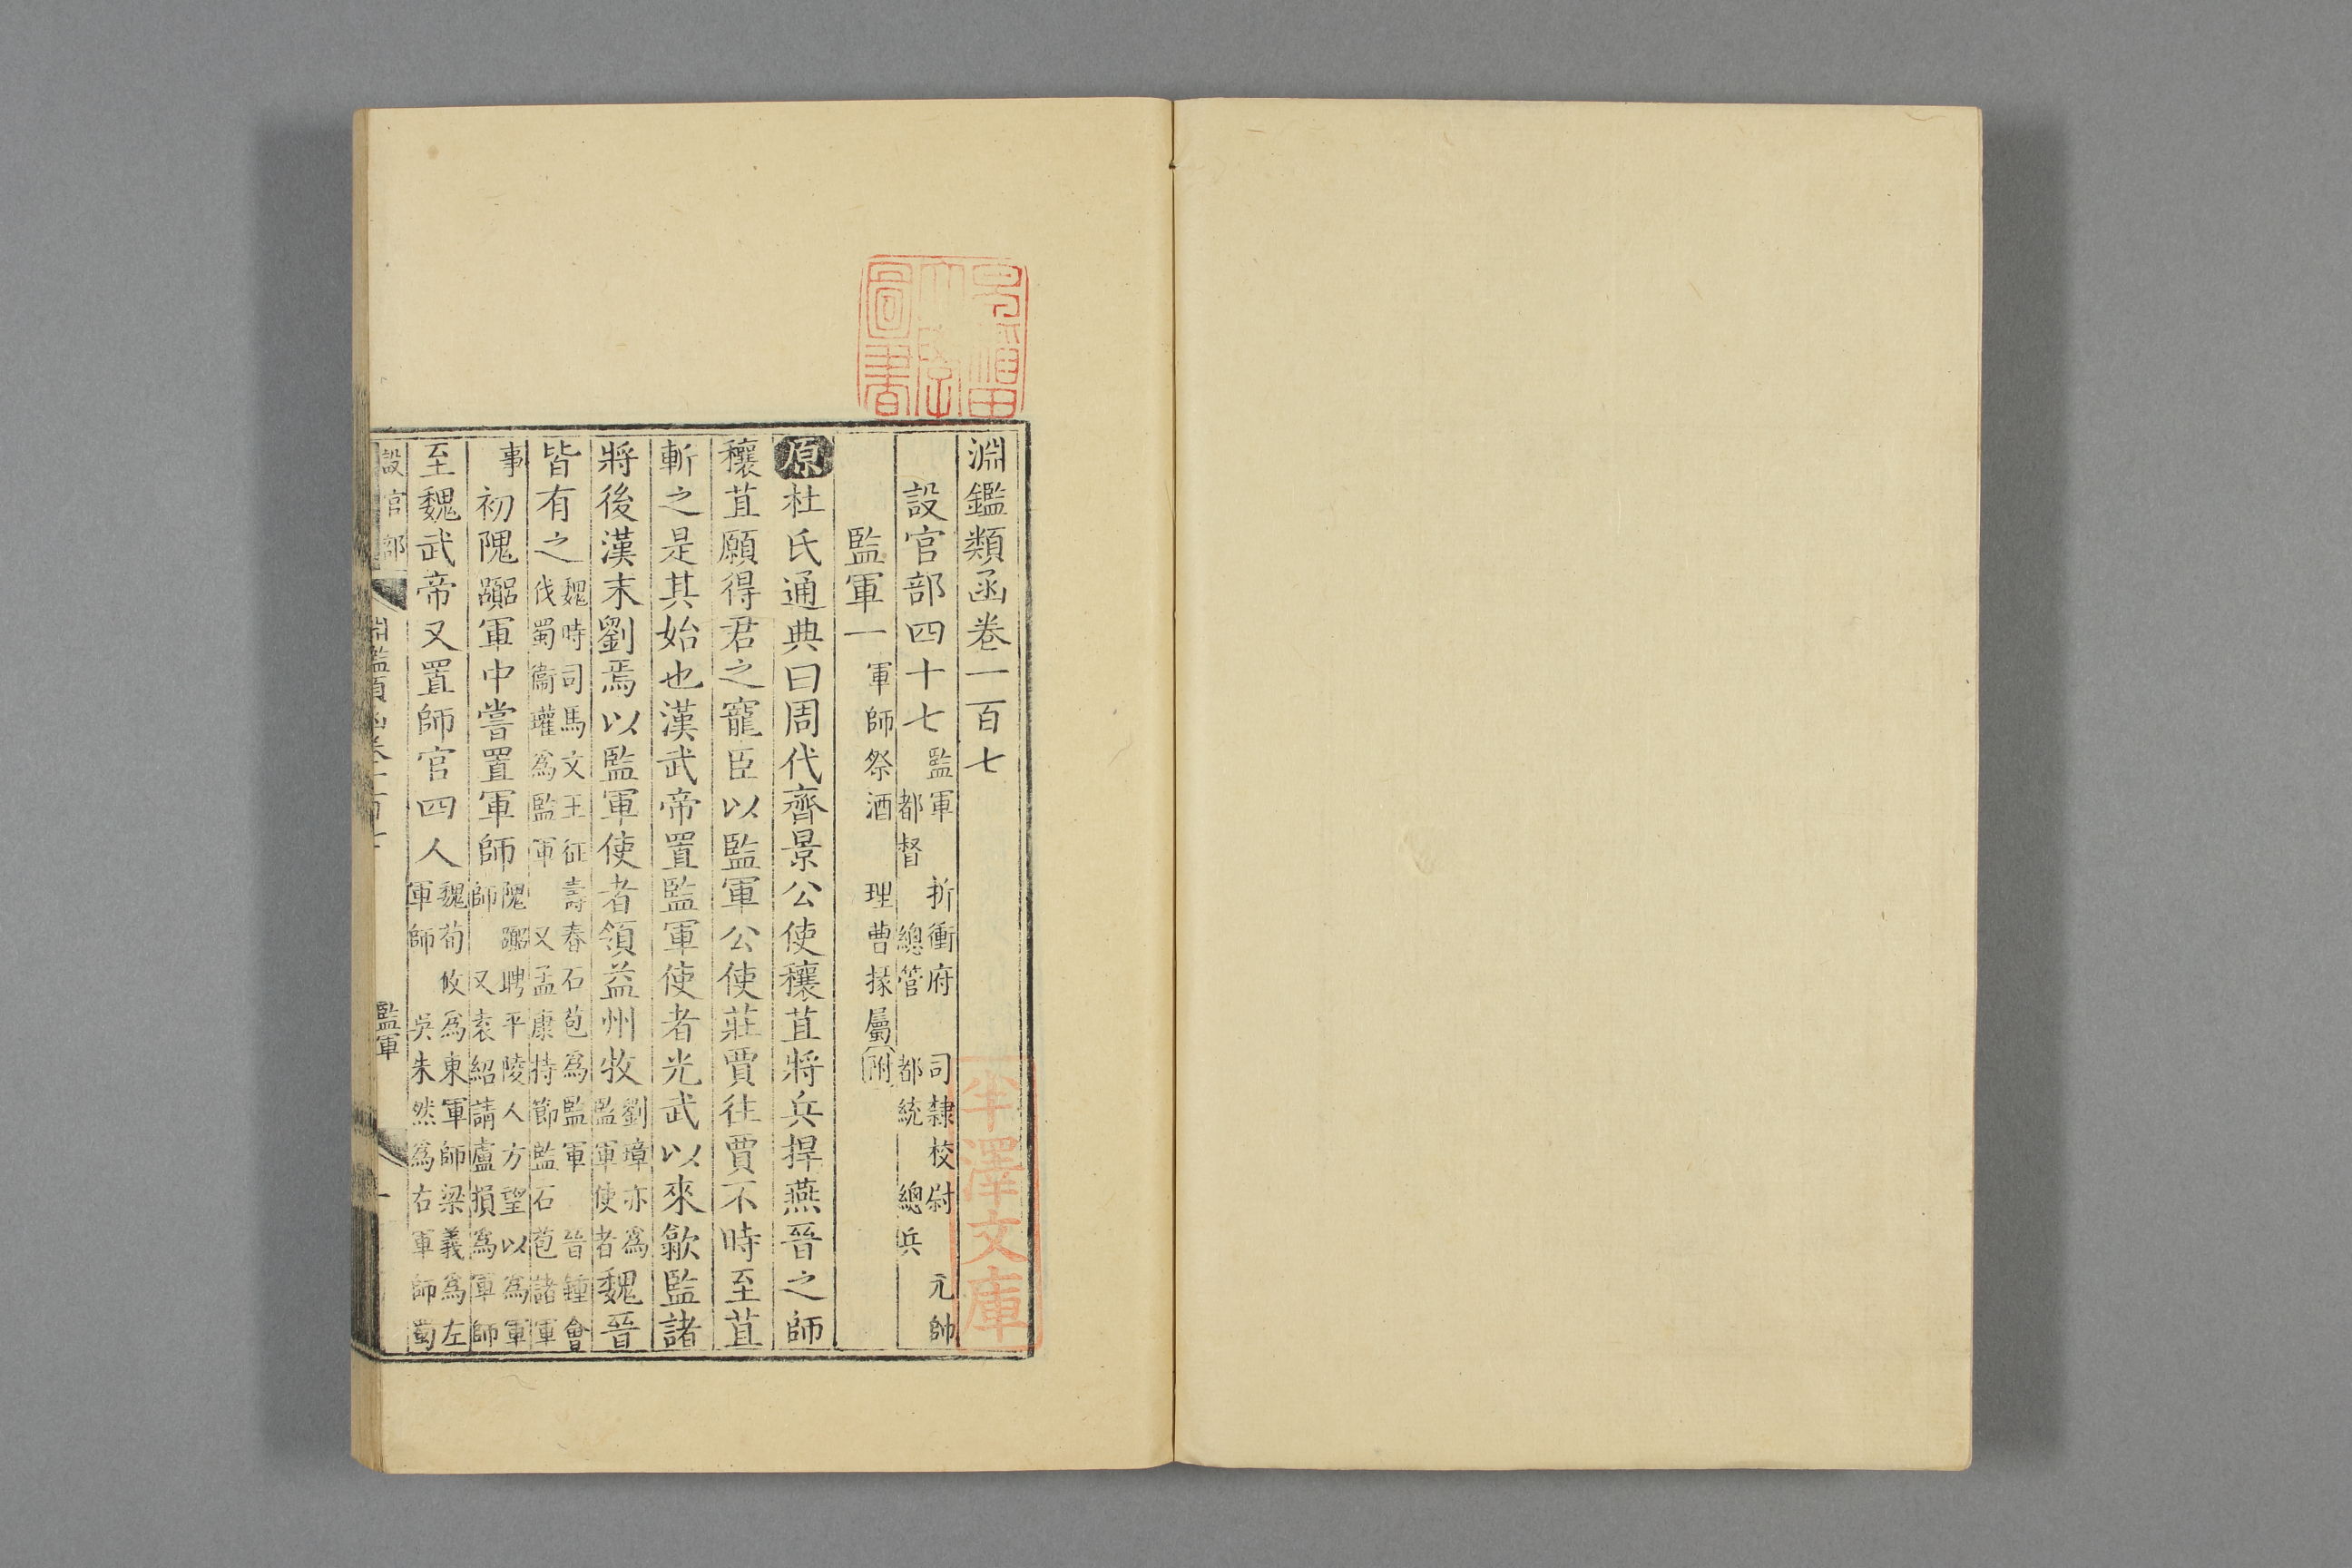 淵鑑類函卷一百七
設官部四十七 監軍 折衝府 司隸校尉 元帥 都督 總管 都統 總兵
監軍一 軍師祭酒 理曹掾屬附
原杜氏通典曰周代齊景公使穰苴將兵捍燕晉之師
穰苴願得君之寵臣以監軍公使莊賈往賈不時至苴
斬之是其始也漢武帝置監軍使者光武以來歙監諸
將後漢末劉焉以監軍使者領益州牧 劉璋亦為監軍使者 魏晉
皆有之 魏時司馬文王征壽春石苞為監軍 晉鍾會伐蜀衞瓘為監軍 又孟康持節監石苞諸軍
事 初隗囂軍中嘗置軍師 隗囂聘平陵人方望以為軍師 又袁紹請盧損為軍師
至魏武帝又置師官四人 魏荀攸為東軍師梁義為左軍師 吳朱然為右軍師蜀
設官部 淵鑑類函卷一百七 監軍 一
圖書
半澤文庫